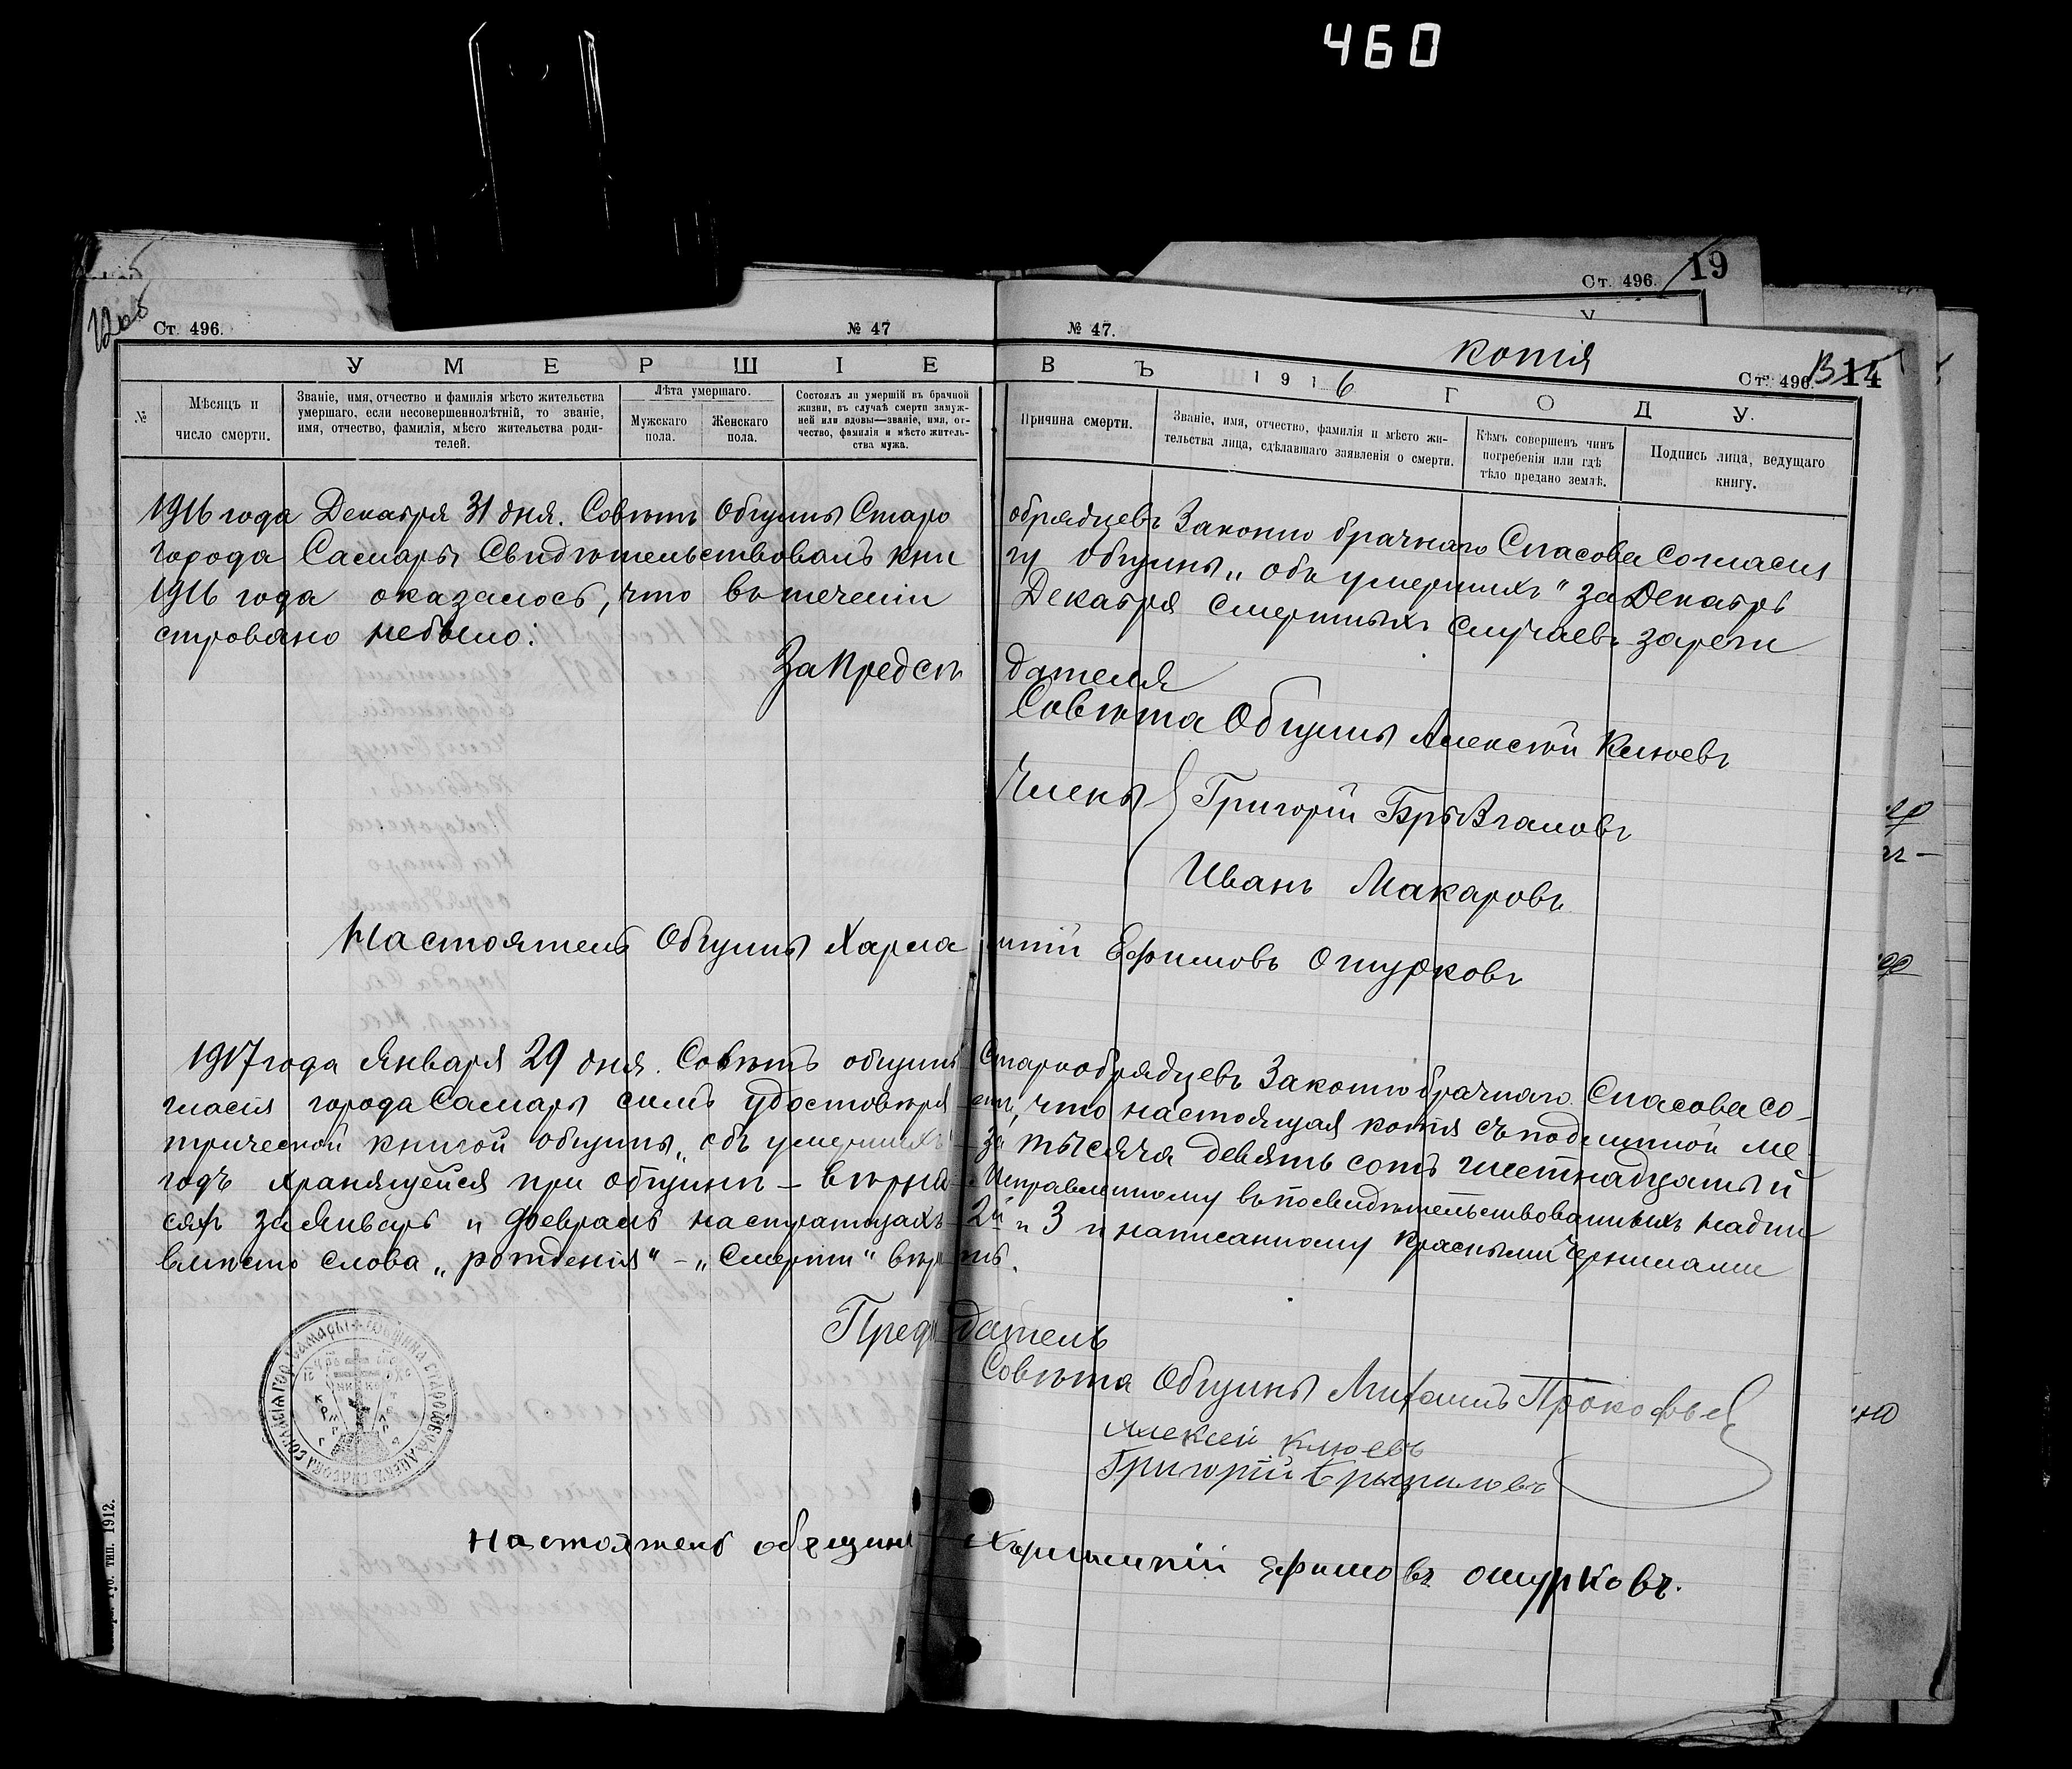 460
Ст. 496. 19
12об
Ст. 496. № 47 № 47. копія Ст. 496. 13 14
УМЕРШІЕ ВЪ 1916 ГОДУ.
№
Мѣсяцъ и число смерти.
Званіе, имя, отчество и фамилія мѣсто жительства
умершаго, если несовершеннолѣтній, то званіе,
имя, отчество, фамилія, мѣсто жительства роди-
телей.
Лѣта умершаго.
Мужскаго пола.
Женскаго пола.
Состоялъ ли умершій въ брачной
жизни, въ случаѣ смерти замуж-
ней или вдовы—званіе, имя, от-
чество, фамилія и мѣсто житель-
ства мужа.
Причина смерти.
Званіе, имя, отчество, фамилія и мѣсто жи-
тельства лица, сдѣлавшаго заявленія о смерти.
Кѣмъ совершенъ чинъ
погребенія или гдѣ
тѣло предано землѣ.
Подпись лица, ведущаго
книгу.
1916 года Декабря 31 дня. Совѣтъ Общины Старо обрядцевъ Законно брачнаго Спасова Согласия
города Самары Свидѣтельствовалъ кни гу общины „объ умершихъ" за Декабрь
1916 года оказалось, что въ теченіи Декабря смертныхъ случаевъ зареги
стровано небыло:
За Предсѣ дателя
Совѣта Общины Алексѣй Клюевъ
Члены Григорій Брызгаловъ
Иванъ Макаровъ
Настоятель Общины Харла мпій Ефимовъ Ошурковъ
1917 года Января 29 дня. Совѣтъ общины Старообрядцевъ Законнобрачнаго Спасова со-
гласія города Самары симъ удостовѣря етъ, что настоящая копія съ подлинной ме-
трической книгой общины „объ умершихъ" за тысяча девять сотъ шестнадцатый
годъ хранящейся при общинѣ – вѣрна. Исправленному въ посвидѣтельствованныхъ надпи
сяхъ за Январь и февраль на страницахъ 2й и 3 и написанному красными чернилами
вмѣсто слова „рожденія" – „Смерти" вѣрить.
Предсѣдатель
Совѣта Общины Михаилъ Прокофьев
Алексей Клюевъ
Григорій Брызгаловъ
Настоятель общины Харлампій Ефимовъ Ошурковъ.
тип. 1912.